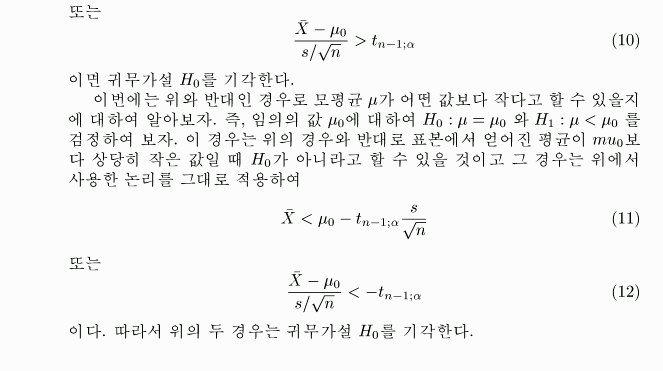 또는
\frac{\bar{X} - \mu_0}{s/\sqrt{n}} > t_{n-1;\alpha} (10)
이면 귀무가설 H_0를 기각한다.
이번에는 위와 반대인 경우로 모평균 μ가 어떤 값보다 작다고 할 수 있을지
에 대하여 알아보자. 즉, 임의의 값 μ_0에 대하여 H_0 : μ = μ_0 와 H_1 : μ < μ_0 를
검정하여 보자. 이 경우는 위의 경우와 반대로 표본에서 얻어진 평균이 mu_0보
다 상당히 작은 값일 때 H_0가 아니라고 할 수 있을 것이고 그 경우는 위에서
사용한 논리를 그대로 적용하여
\bar{X} < \mu_0 - t_{n-1;\alpha} \frac{s}{\sqrt{n}} (11)
또는
\frac{\bar{X} - \mu_0}{s/\sqrt{n}} < -t_{n-1;\alpha} (12)
이다. 따라서 위의 두 경우는 귀무가설 H_0를 기각한다.